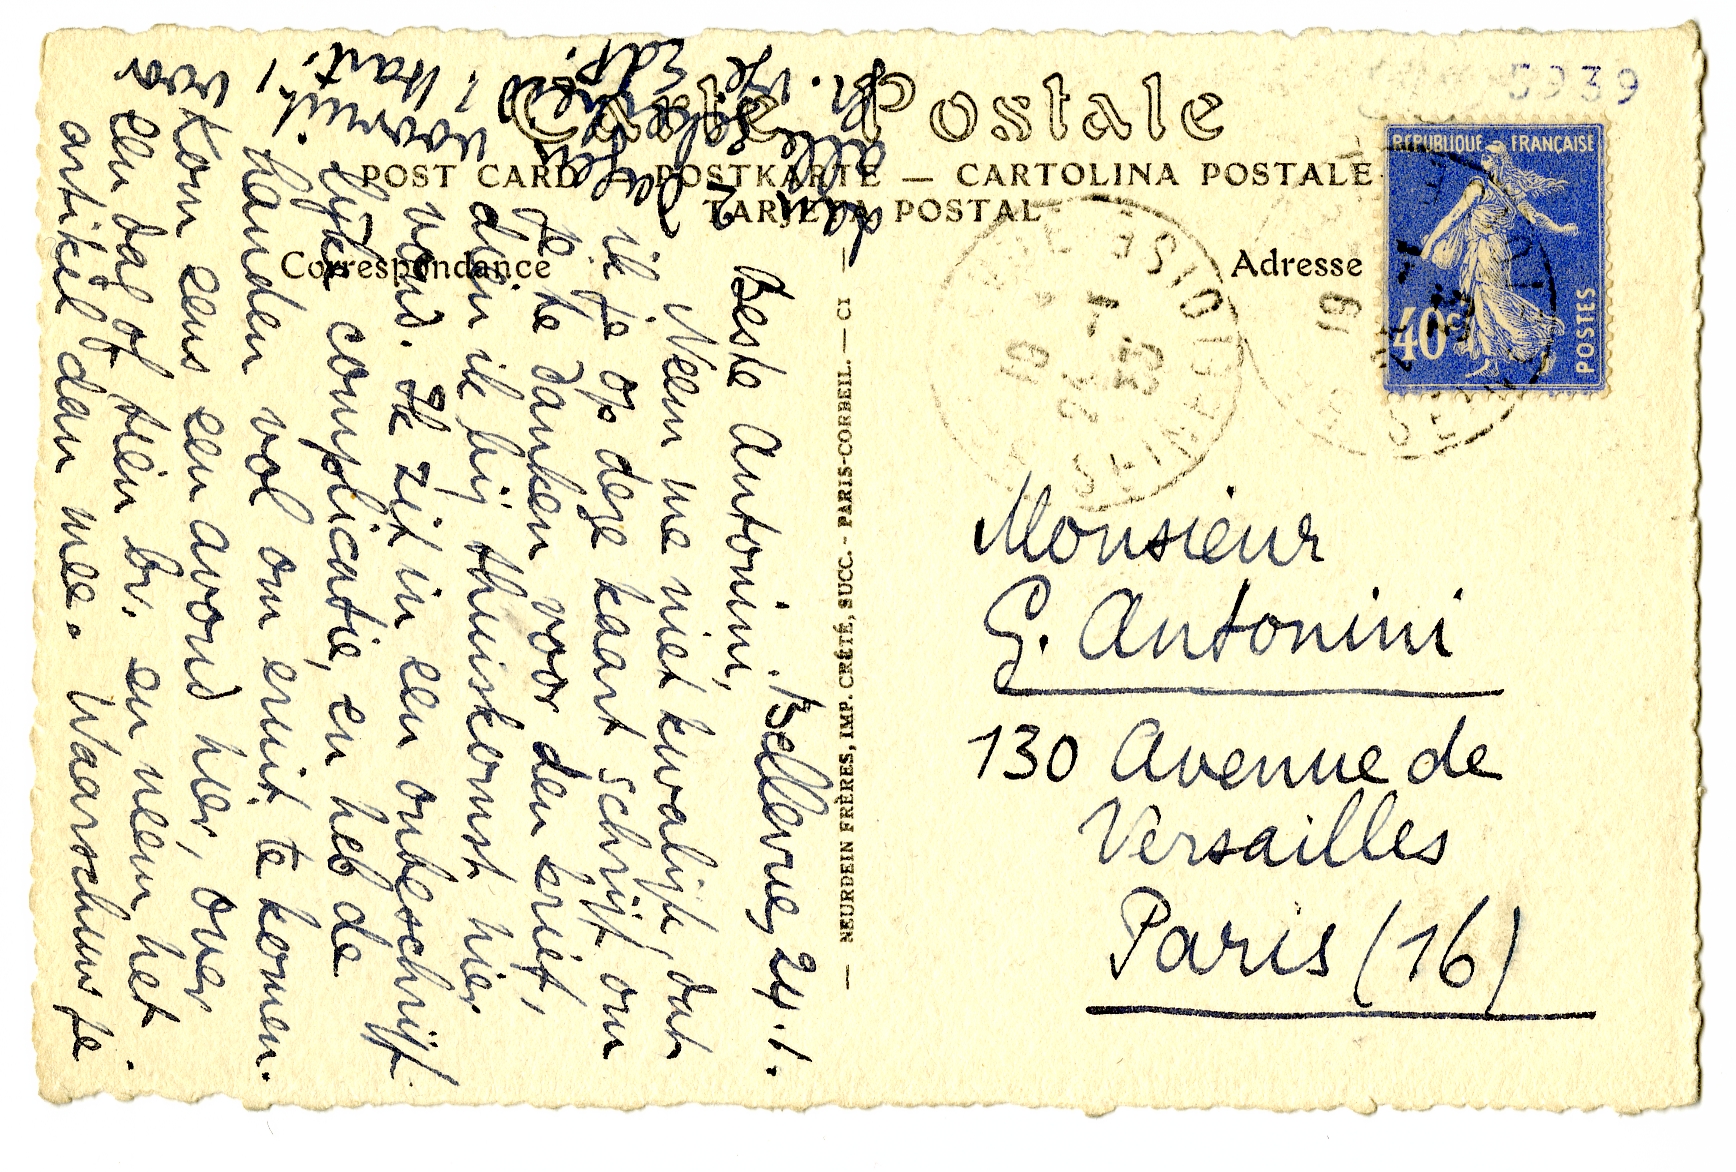 5939
Carte Postale
POST CARD — POSTKARTE — CARTOLINA POSTALE
TARJETA POSTAL
Correspondance
Adresse
REPUBLIQUE FRANÇAISE
40c
POSTES
SEINE-ET-OISE
19
24-1
33
NEURDEIN FRÈRES, IMP. CRÉTÉ, SUCC. - PARIS-CORBEIL. — CI
Monsieur
G. Antonini
130 Avenue de
Versailles
Paris (16)
Bellevue, 24.1.
Beste Antonini,
Neem me niet kwalijk, dat
ik je op deze kaart schrijf om
je te danken voor den brief,
dien ik bij thuiskomst hier
vond. Ik zit in een onbeschrijf-
lijke complicatie, en heb de
handen vol om eruit te komen.
Kom eens een avond hier, over
een dag of tien bv. en neem het
artikel dan mee. Waarschuw je
voor
alle zekerheid
2 dagen
vooruit!
Hart.
EdP.